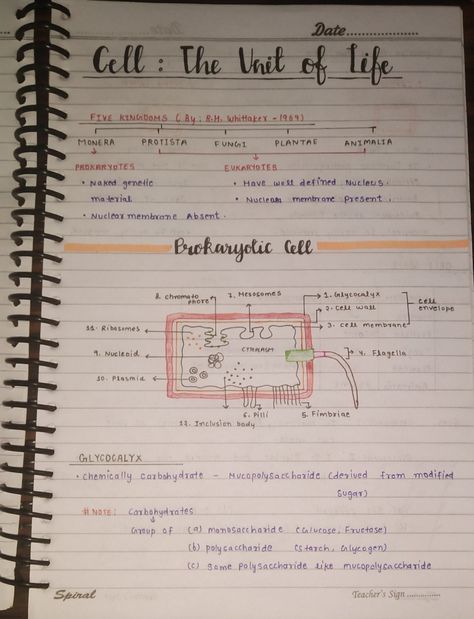 Date
Cell : The Unit of Life
FIVE KINGDOMS ( By : R.H. Whittaker - 1969)
MONERA PROTISTA FUNGI PLANTAE ANIMALIA
PROKARYOTES EUKARYOTES
• Naked genetic • Have well defined Nucleus.
material • Nuclear membrane present.
• Nuclear membrane Absent.
Prokaryotic Cell
8. chromato phore 7. Mesosomes 1. Glycocalyx
2. Cell wall cell envelope
11. Ribosomes 3. cell membrane
9. Nucleoid CYTOPLASM 4. Flagella
10. Plasmid
6. Pilli 5. Fimbriae
12. Inclusion body
GLYCOCALYX
• Chemically carbohydrate - Mucopolysaccharide (derived from modified
Sugar)
# NOTE: Carbohydrates
Group of (a) monosaccharide (Glucose, Fructose)
(b) polysaccharide (Starch, Glycogen)
(c) Some polysaccharide like mucopolysaccharide
Spiral Teacher's Sign